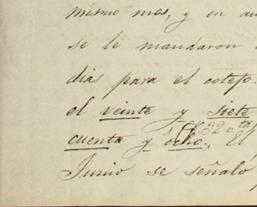 mismo mes, y en au
se le mandaron
dias para el cotejo.
el veinte y siete
cuenta y ocho, El
Junio se señaló